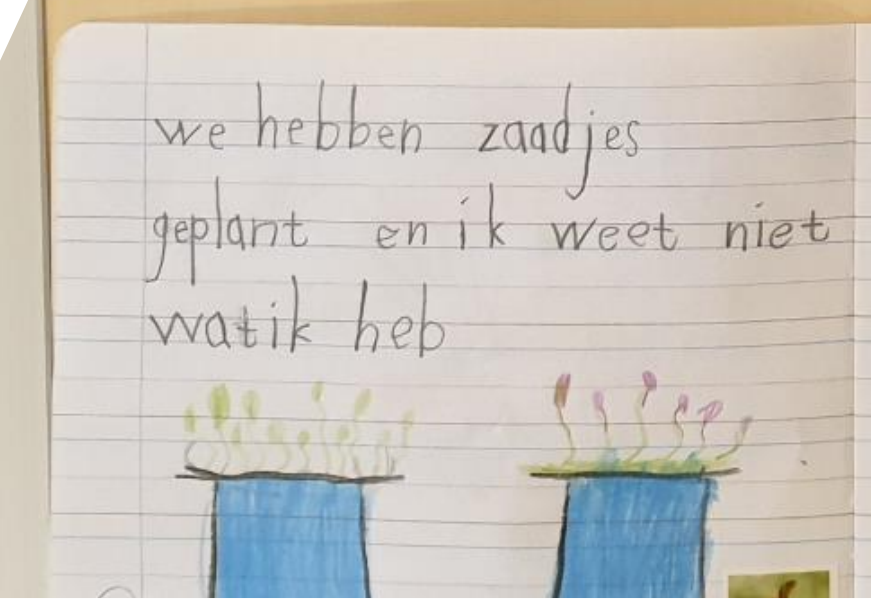 we hebben zaadjes
geplant en ik weet niet
watik heb